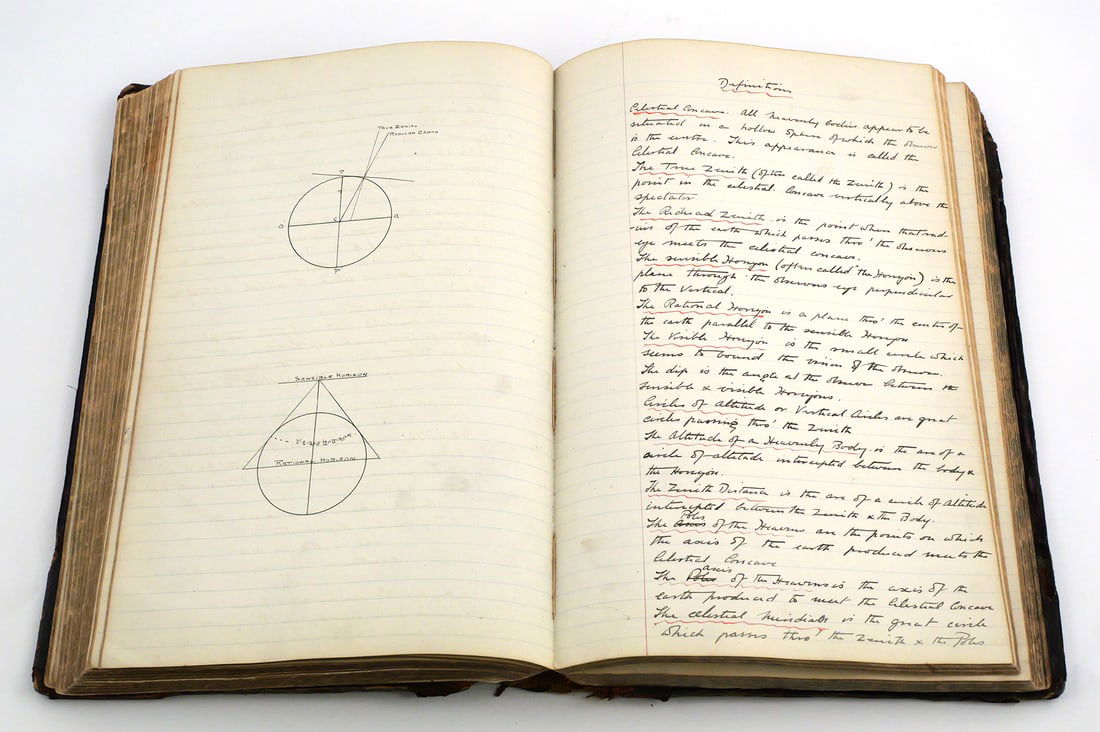 TRUE ZENITH
REDUCED ZENITH
P
C
Q
P
SENSIBLE HORIZON
VISIBLE HORIZON
RATIONAL HORIZON
Definitions
Celestial Concave. All heavenly bodies appear to be
situated in a hollow sphere of which the observer
is the centre. This appearance is called the
Celestial Concave.
The True Zenith (often called the Zenith) is the
point in the celestial Concave vertically above the
spectator
The Reduced Zenith is the point when that rad-
-ius of the earth which passes thro' the observers
eye meets the celestial concave.
The sensible Horizon (often called the Horizon) is the
plane through the observers eye perpendicular
to the Vertical.
The Rational Horizon is a plane thro' the centre of
the earth parallel to the sensible Horizon
The Visible Horizon is the small circle which
seems to bound the vision of the observer.
The dip is the angle at the observer between the
sensible & visible Horizons.
Circles of altitude or Vertical Circles are great
circles passing thro' the Zenith
The Altitude of a Heavenly Body is the arc of a
circle of altitude intercepted between the body &
the Horizon.
The Zenith Distance is the arc of a circle of Altitude
intercepted between the Zenith & the Body.
The Poles of the Heavens are the points on which
the axis of the earth produced meets the
Celestial Concave
The axis of the Heavens is the axis of the
earth produced to meet the Celestial Concave
The celestial meridian is the great circle
which passes thro' the Zenith & the Poles